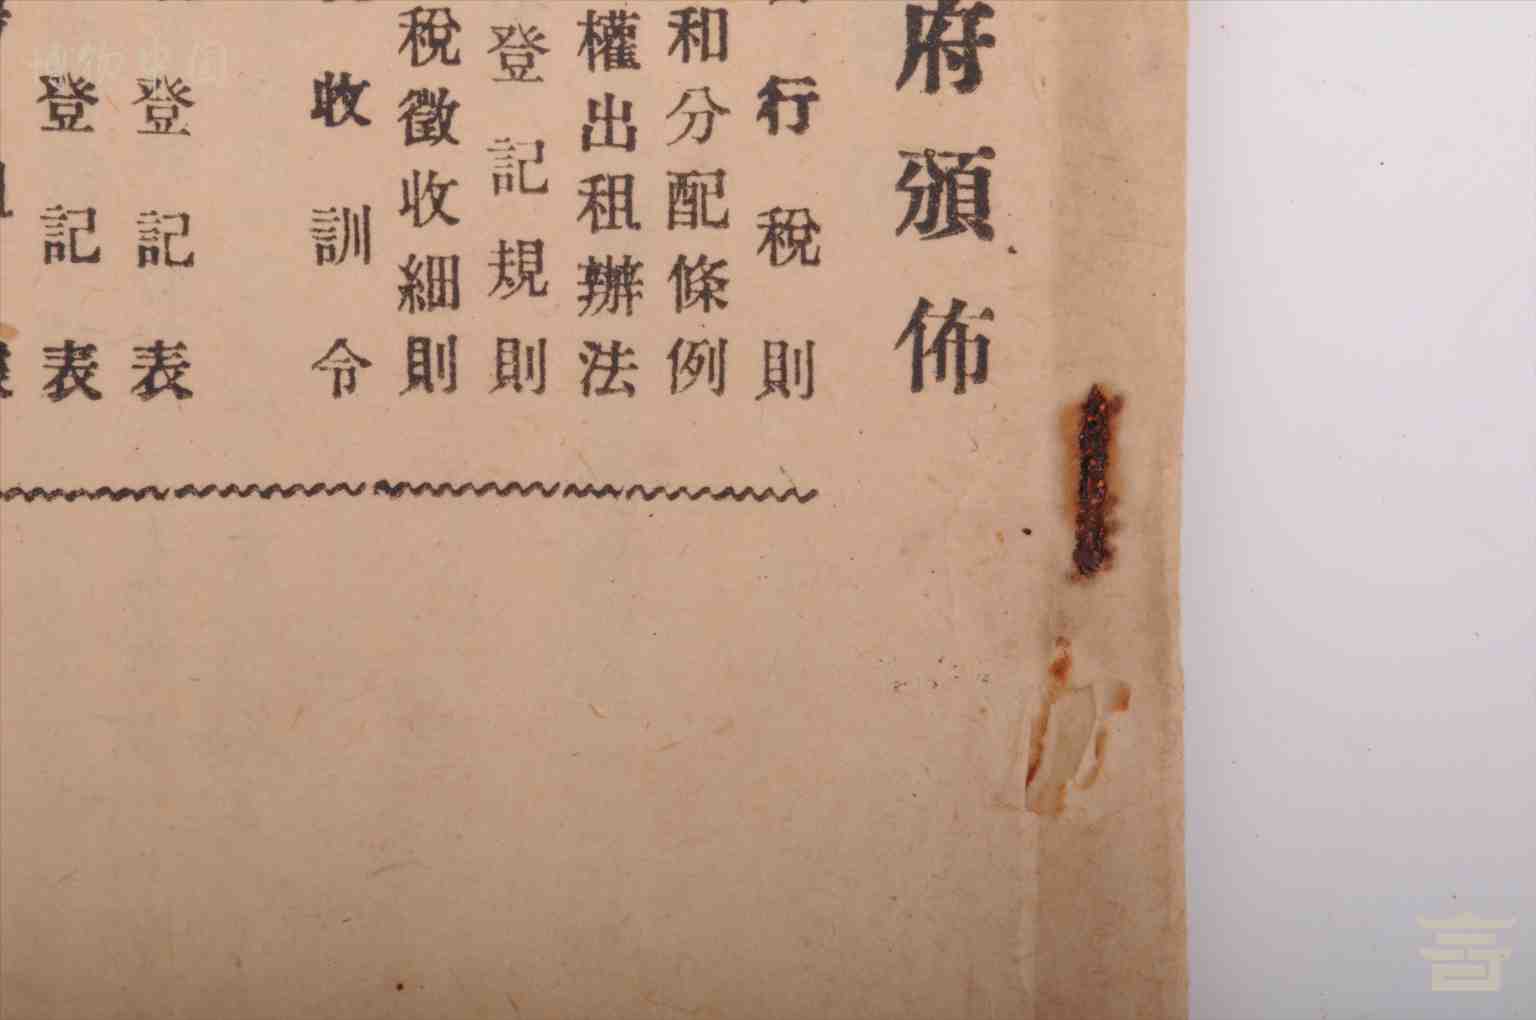 府頒佈
行稅則
和分配條例
權出租辦法
登記規則
稅徵收細則
收訓令
登記表
登記表